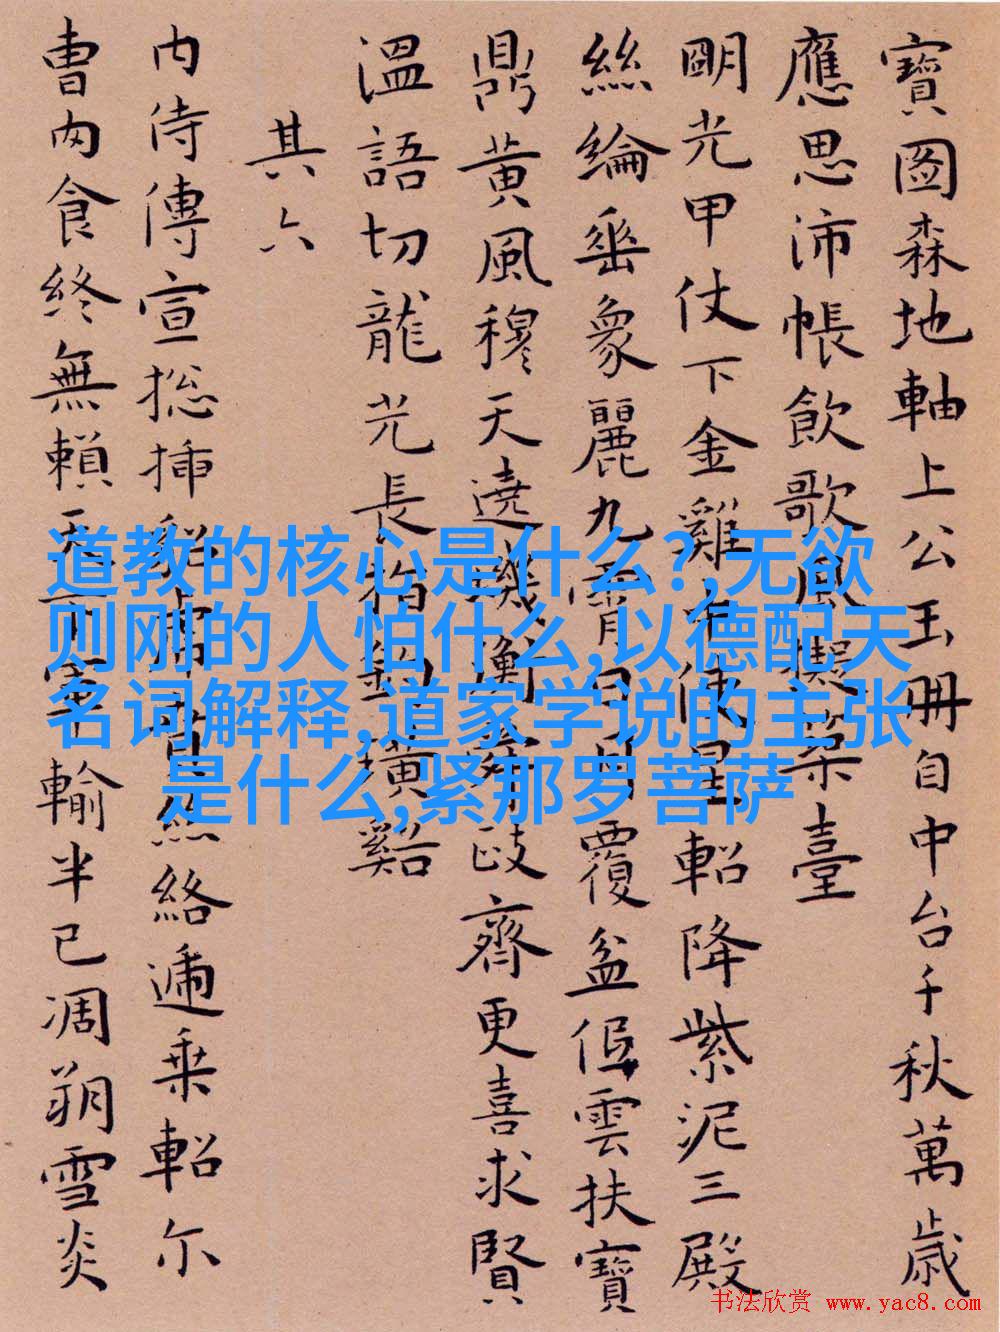 寶圖森地軸上公玉冊自中台千秋萬歳
應思沛帳飲歌風擬臺
明光甲仗下金雞使星軺降紫泥三殿
絲綸垂象麗九霄日月覆盆雲扶寶
鼎黃風穆天遶璣衡政齊更喜求賢
溫語切龍光長釣璜谿
其六
內侍傳宣捴插貂絲絡遞乘軺尓
曹內食終無賴天下軍輸半已凋朔雪炎
道教的核心是什么?,无欲
则刚的人怕什么,以德配天
名词解释,道家学说的主张
是什么,紧那罗菩萨
书法欣赏 www.yac8.com